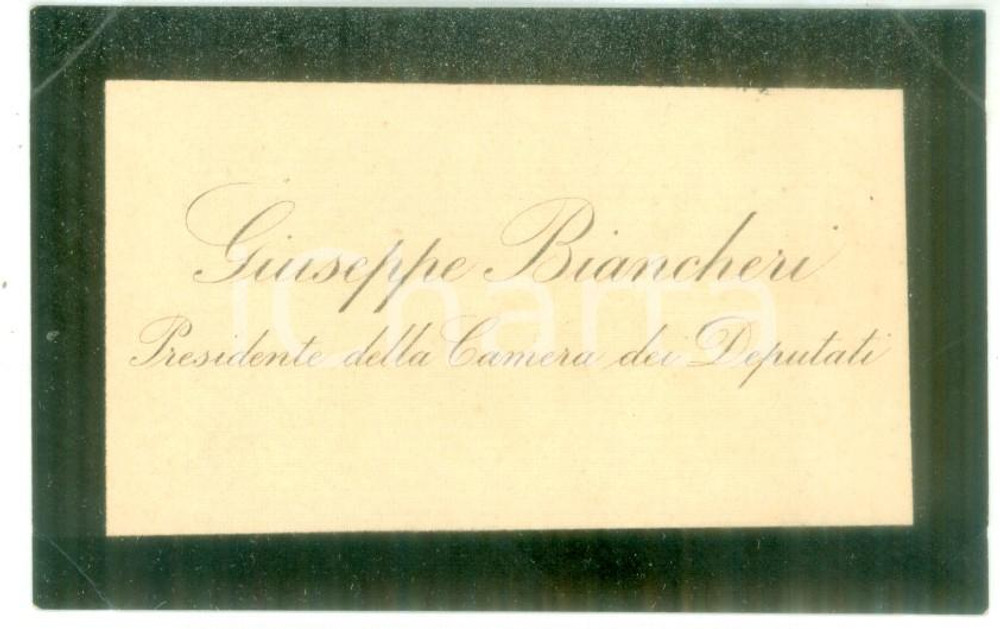 Giuseppe Biancheri
Presidente della Camera dei Deputati
iCharta